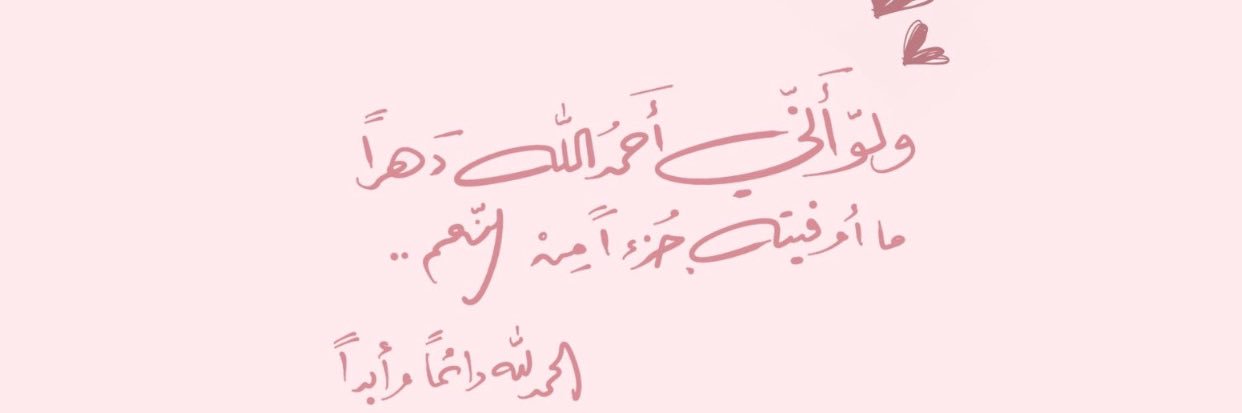 ولوّ أَنّي أَحمدُ اللّٰه دَهراً
ما أوفيته جُزءاً مِنْ النّعم ..
الحمدلله دائماً وأبداً